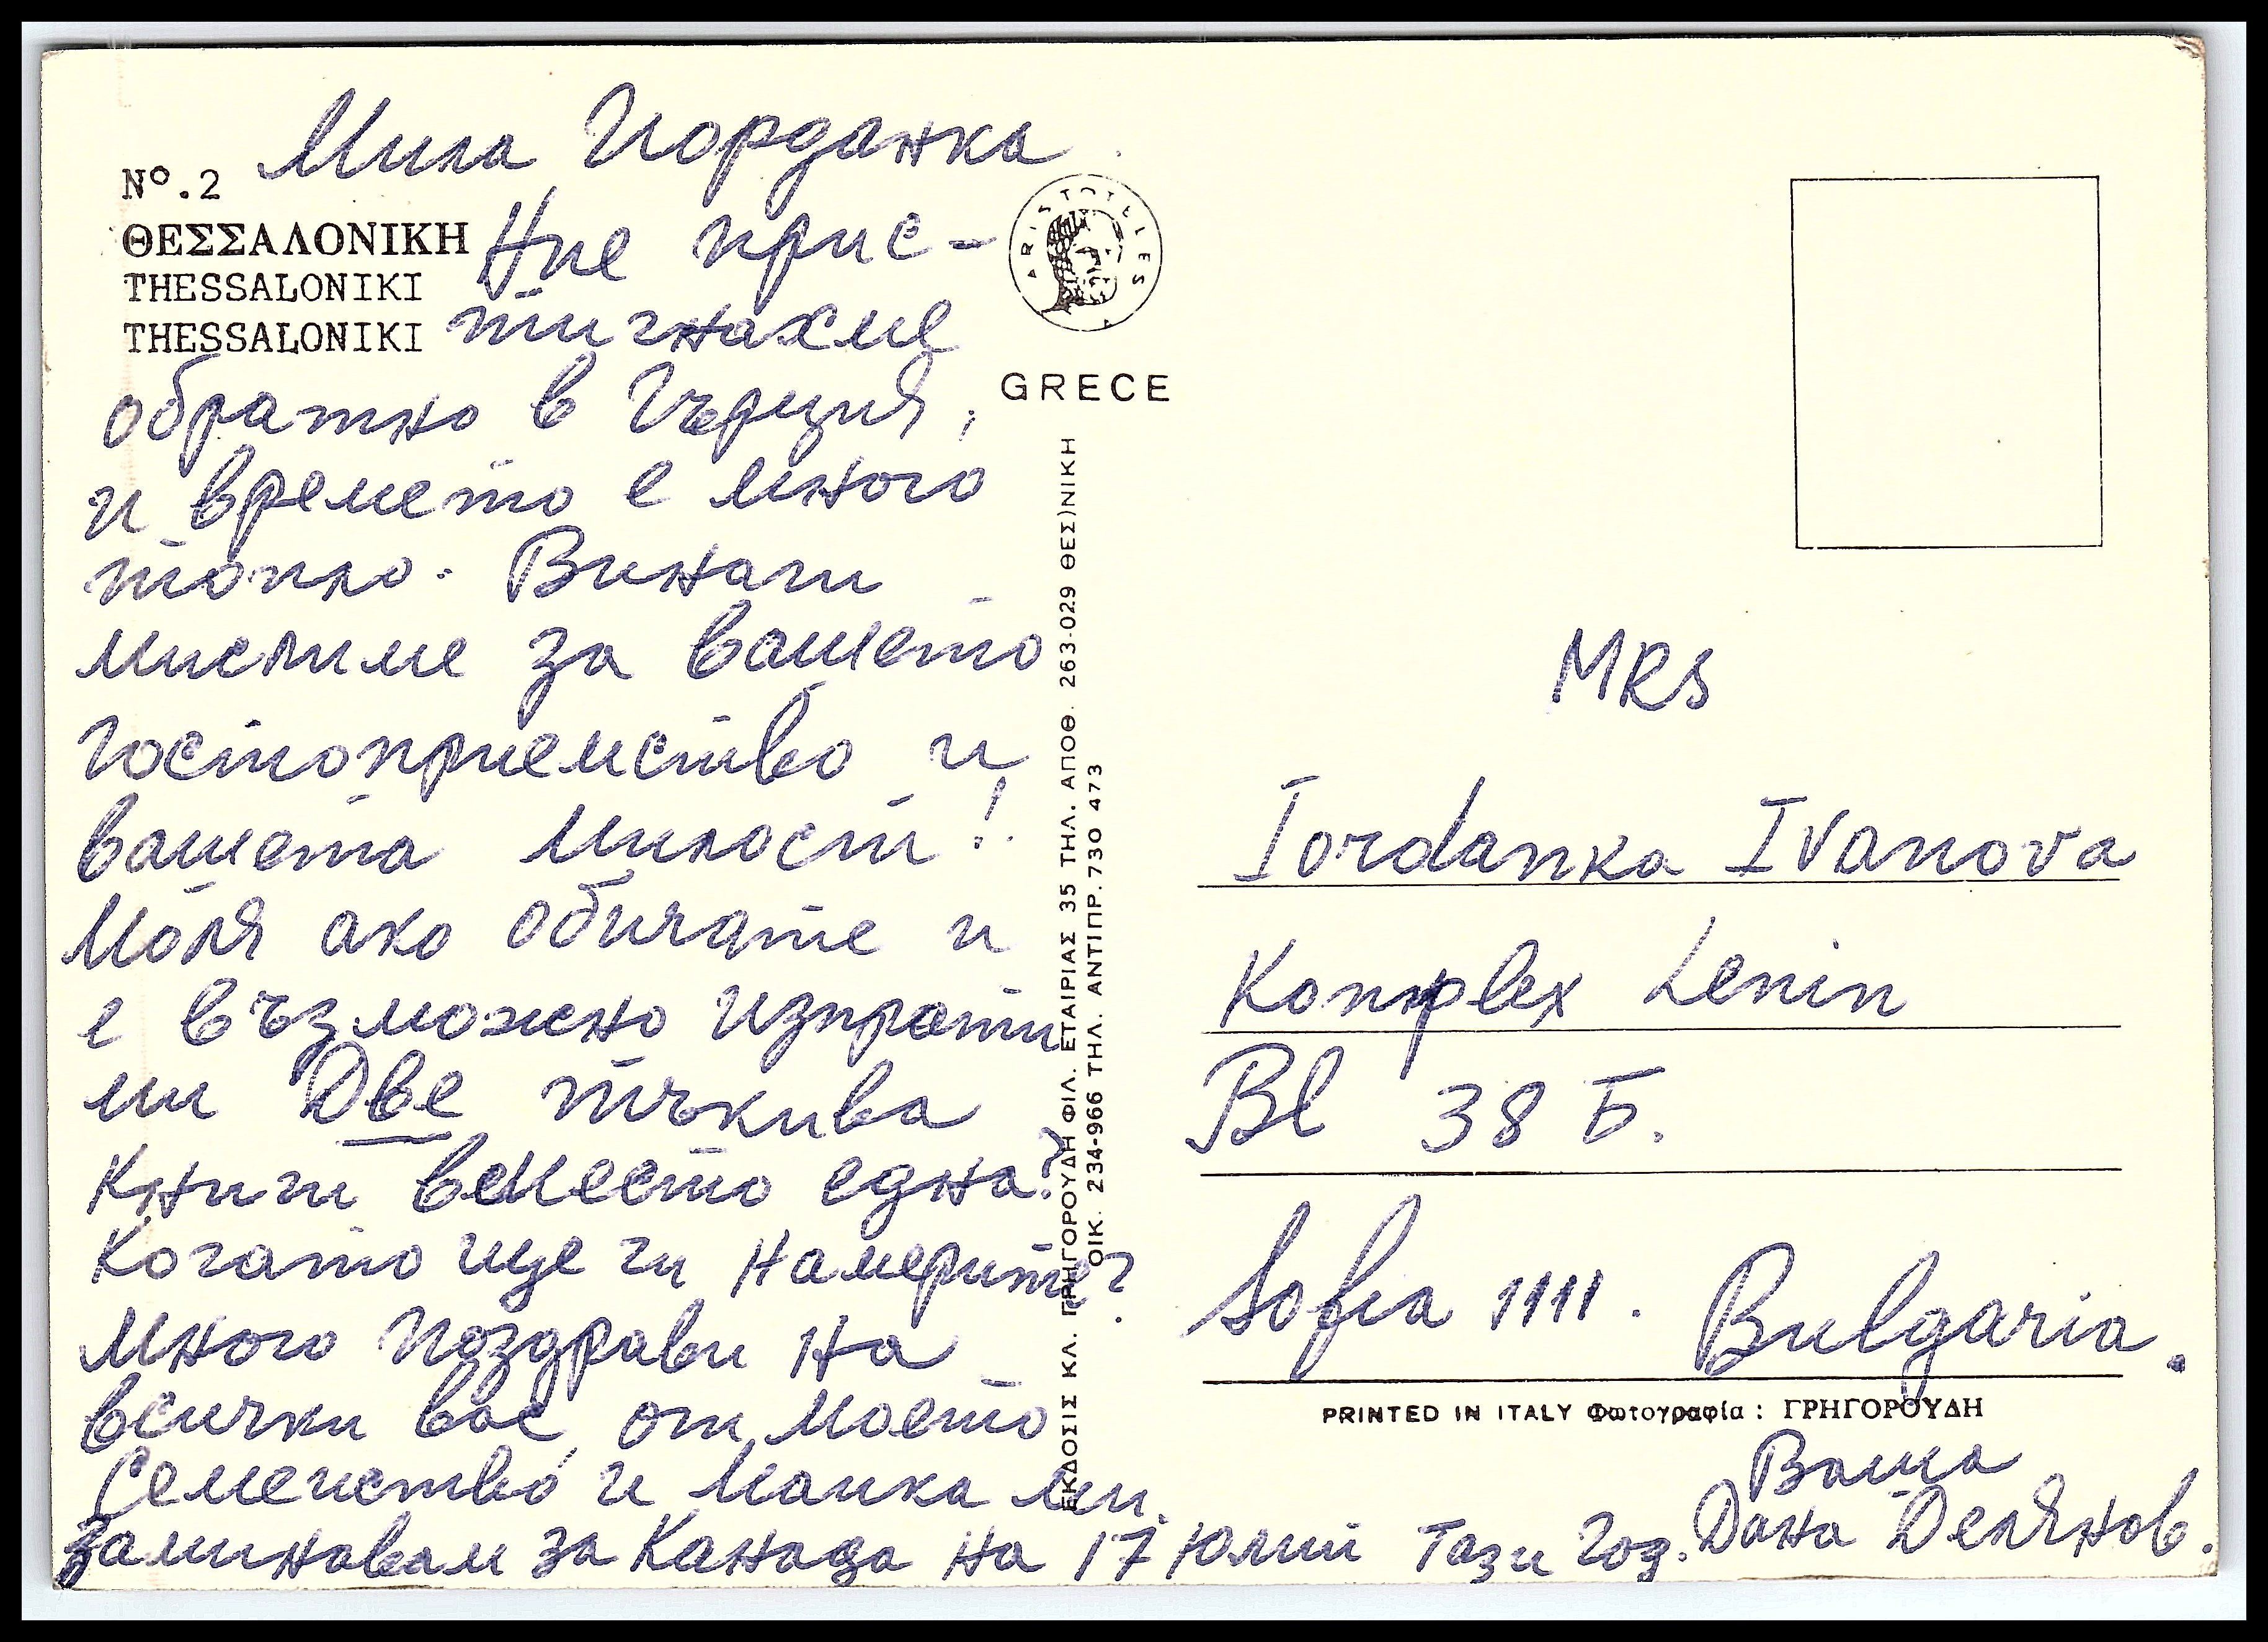 Мила Йорданка
Nº.2
ΘΕΣΣΑΛΟΝΙΚΗ
THESSALONIKI
THESSALONIKI
Ние прис-
тигнахме
обратно в Гърция,
и времето е много
топло. Винаги
мислиме за вашето
гостоприемство и
вашета милост!
Моля ако обичате и
е възможно изпрати
ми Две тъкива
Книги вместо една?
Когато ще ги намерите?
Много поздрави на
всички вас, от моето
Семейство и Майка ми.
Заминавам за Канада на 17 Юлий Тази Год.
Ваша
Дана Делянов.
ARISTOTELES
GRECE
ΕΚΔΟΣΙΣ ΚΛ. ΓΡΗΓΟΡΟΥΔΗ ΦΙΛ. ΕΤΑΙΡΙΑΣ 35 ΤΗΛ. ΑΠΟΘ. 263-029 ΘΕΣ)ΝΙΚΗ
ΟΙΚ. 234-966 ΤΗΛ. ΑΝΤΙΠΡ. 730 473
MRS
Iordanka Ivanova
Komplex Lenin
Bl 38 Б.
Sofia 1111. Bulgaria.
PRINTED IN ITALY Φωτογραφία : ΓΡΗΓΟΡΟΥΔΗ